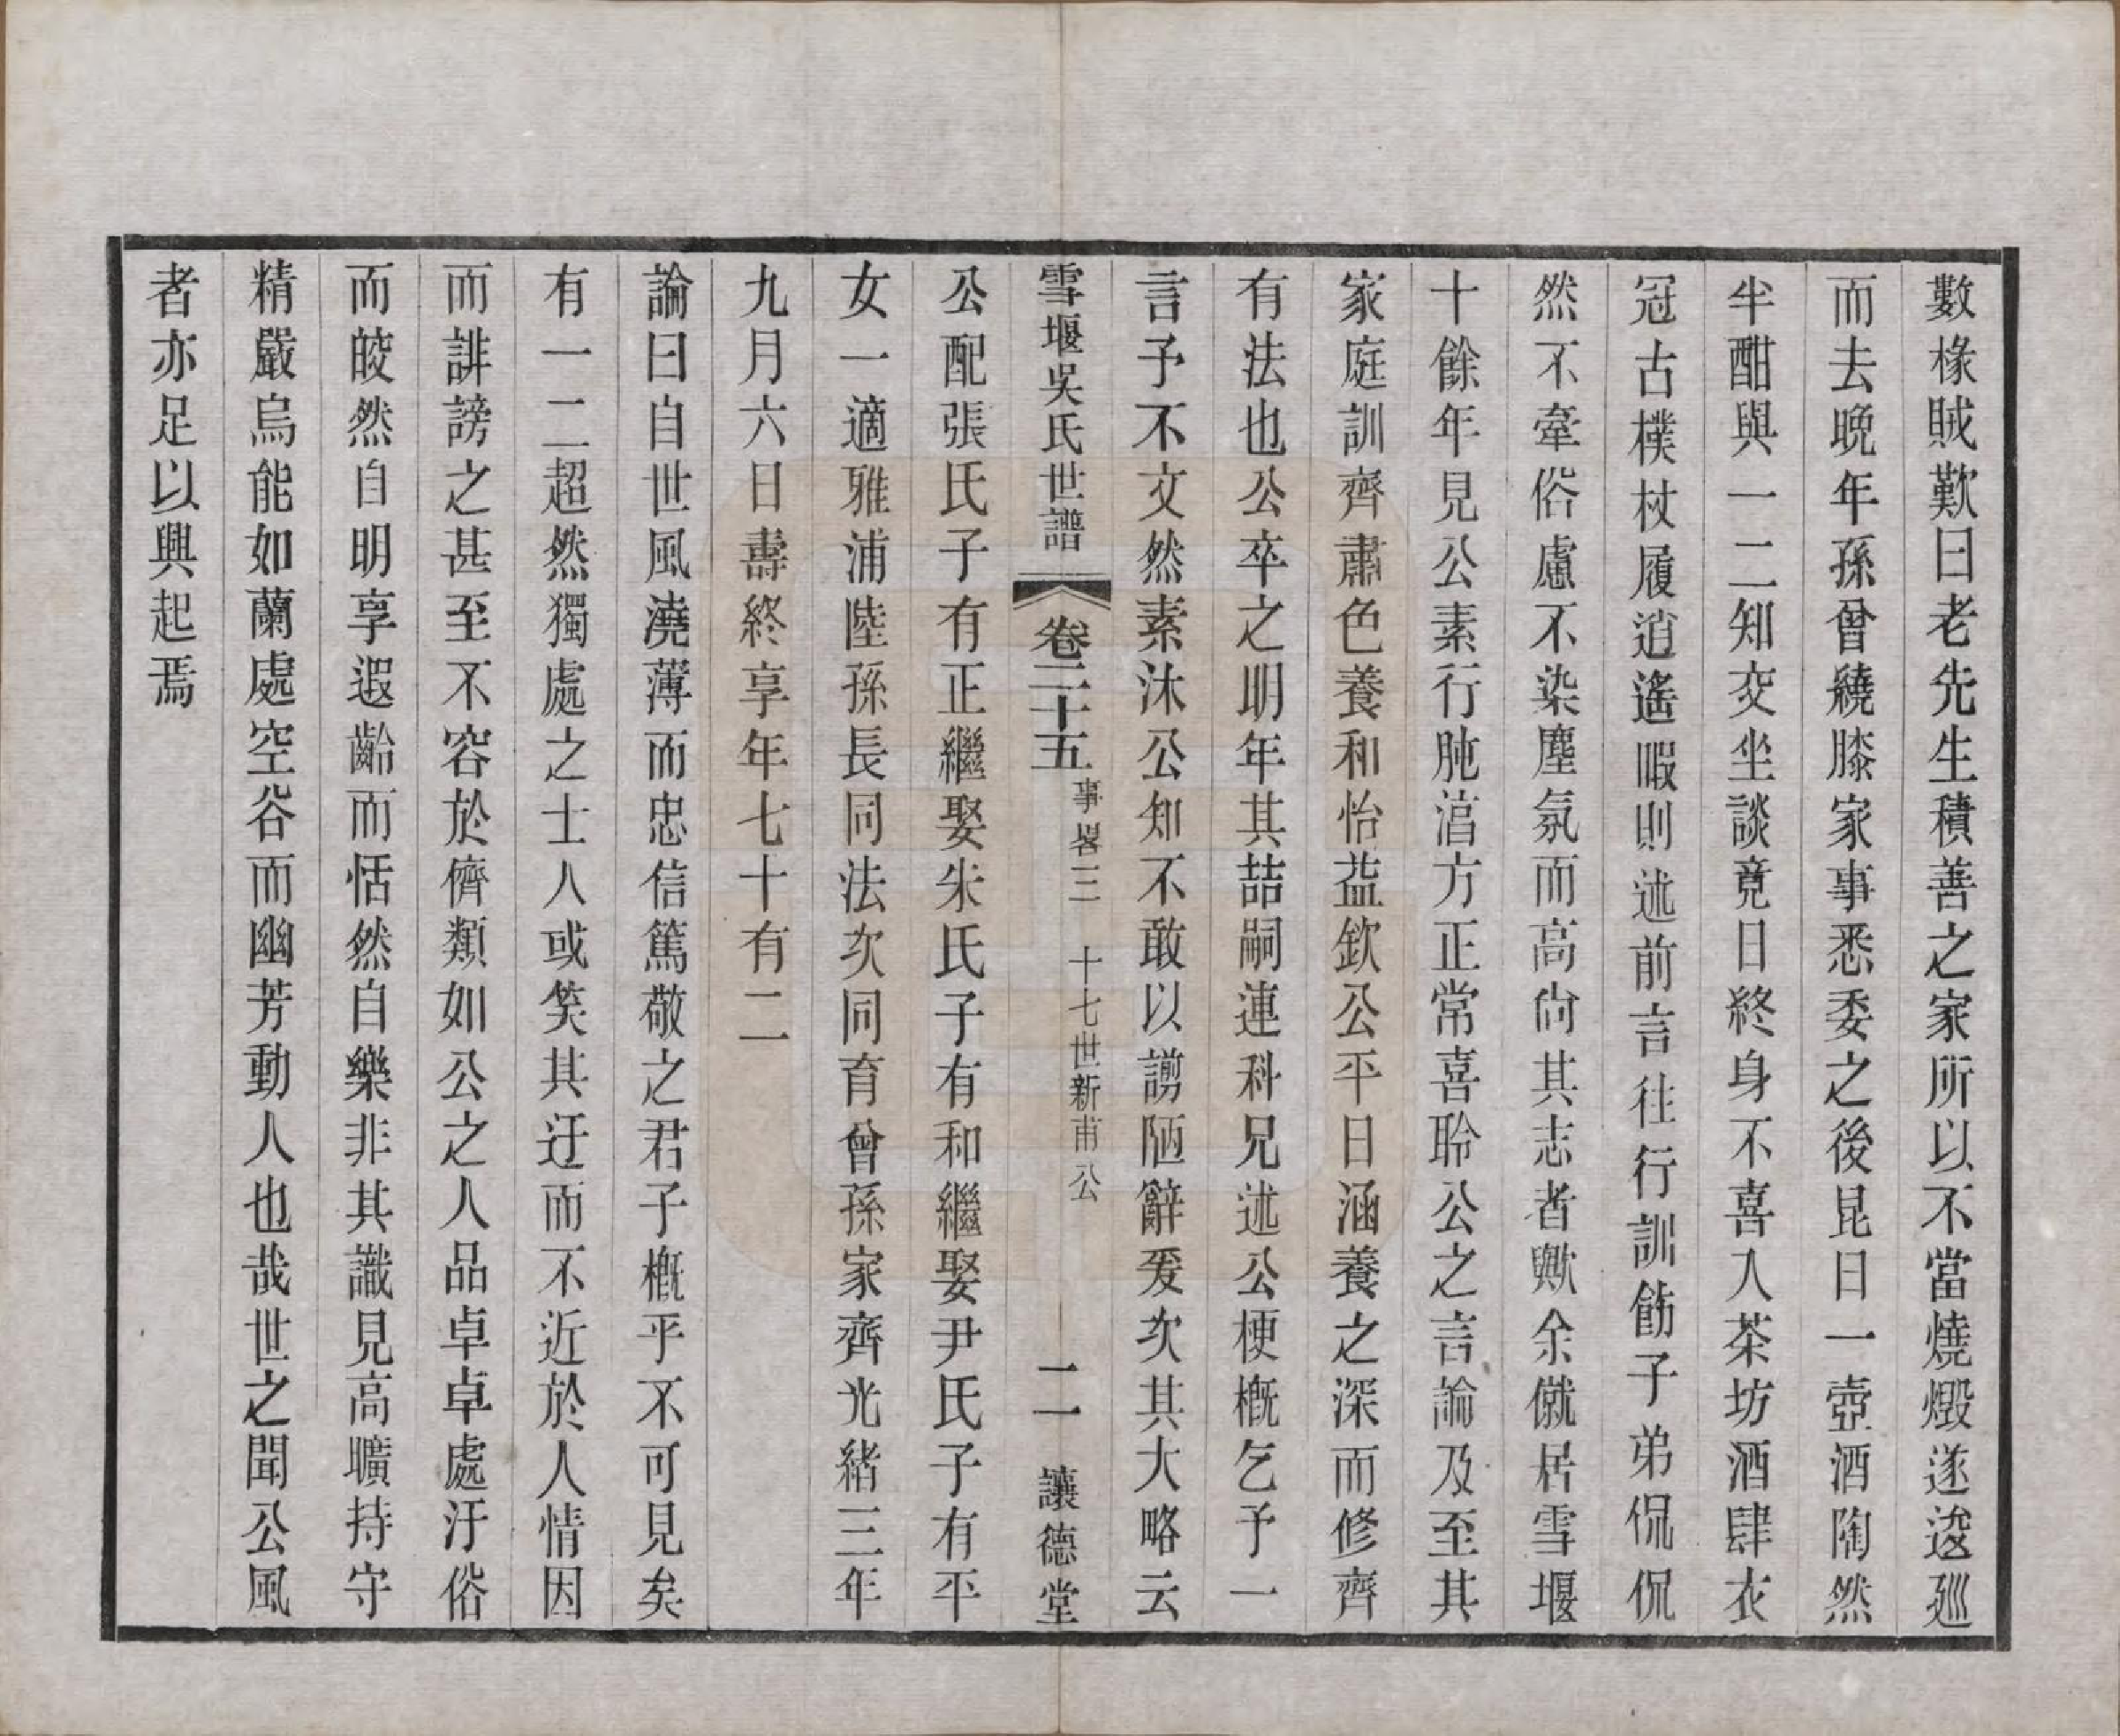 數椽賊歎曰老先生積善之家所以不當燒燬遂逡廵
而去晚年孫曾繞膝家事悉委之後昆日一壺酒陶然
半酣與一二知交坐談竟日終身不喜入茶坊酒肆衣
冠古樸杖履逍遙暇則述前言往行訓飭子弟侃侃
然不牽俗慮不染塵氛而高尙其志者歟余僦居雪堰
十餘年見公素行肫湻方正常喜聆公之言論及至其
家庭訓齊肅色養和怡益欽公平日涵養之深而修齊
有法也公卒之明年其喆嗣連科兄述公梗槪乞予一
言予不文然素沐公知不敢以謭陋辭爰次其大略云
雪堰吳氏世譜 卷二十五 事畧三 十七世新甫公 二 讓德堂
公配張氏子有正繼娶朱氏子有和繼娶尹氏子有平
女一適雅浦陸孫長同法次同育曾孫家齊光緒三年
九月六日壽終享年七十有二
論曰自世風澆薄而忠信篤敬之君子槪乎不可見矣
有一二超然獨處之士人或笑其迂而不近於人情因
而誹謗之甚至不容於儕類如公之人品卓卓處汙俗
而皎然自明享遐齡而恬然自樂非其識見高曠持守
精嚴烏能如蘭處空谷而幽芳動人也哉世之聞公風
者亦足以興起焉